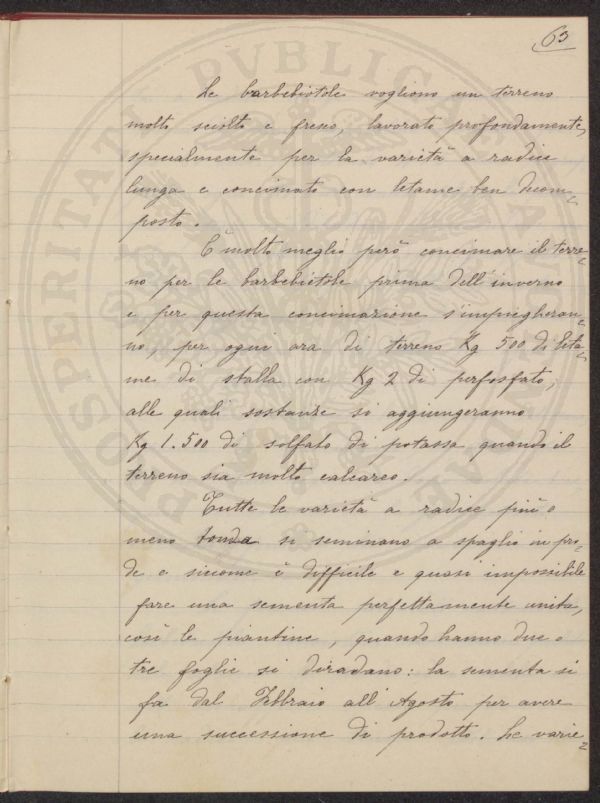 63
Le barbebietole vogliono un terreno
molto sciolto e fresco, lavorato profondamente,
specialmente per la varietà a radice
lunga e concimato con letame ben decom=
posto.
È molto meglio però concimare il terre=
no per le barbebietole prima dell'inverno
e per questa concimazione s'impiegheran=
no, per ogni ara di terreno Kg 500 di leta=
me di stalla con Kg 2 di perfosfato,
alle quali sostanze si aggiungeranno
Kg 1.500 di solfato di potassa quando il
terreno sia molto calcareo.
Tutte le varietà a radice più o
meno tonda si seminano a spaglio in pro=
de e siccome è difficile e quasi impossibile
fare una sementa perfettamente unita,
così le piantine, quando hanno due o
tre foglie si diradano: la sementa si
fa dal Febbraio all'Agosto per avere
una successione di prodotto. Le varie=
PROSPERITATI PVBLICAE AVGENDAE